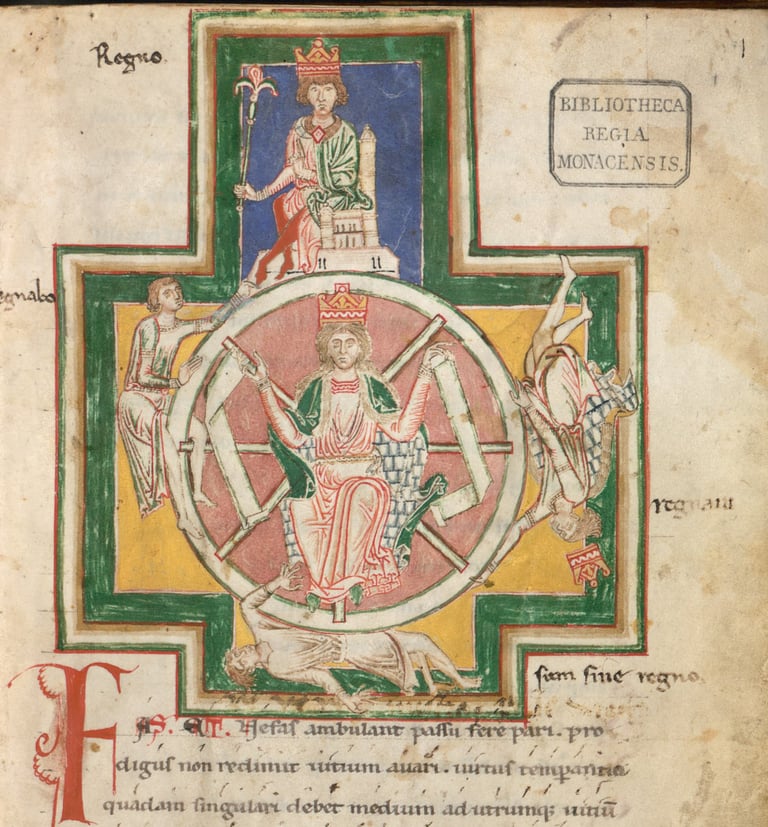 Regno.
BIBLIOTHECA
REGIA
MONACENSIS.
egnabo
regnaui
sum sine regno.
FAS. ET. Nefas ambulant passu fere pari. pro
digus non redimit uitium auari. uirtus temperantia
quadam singulari debet medium ad utrumque uitiū